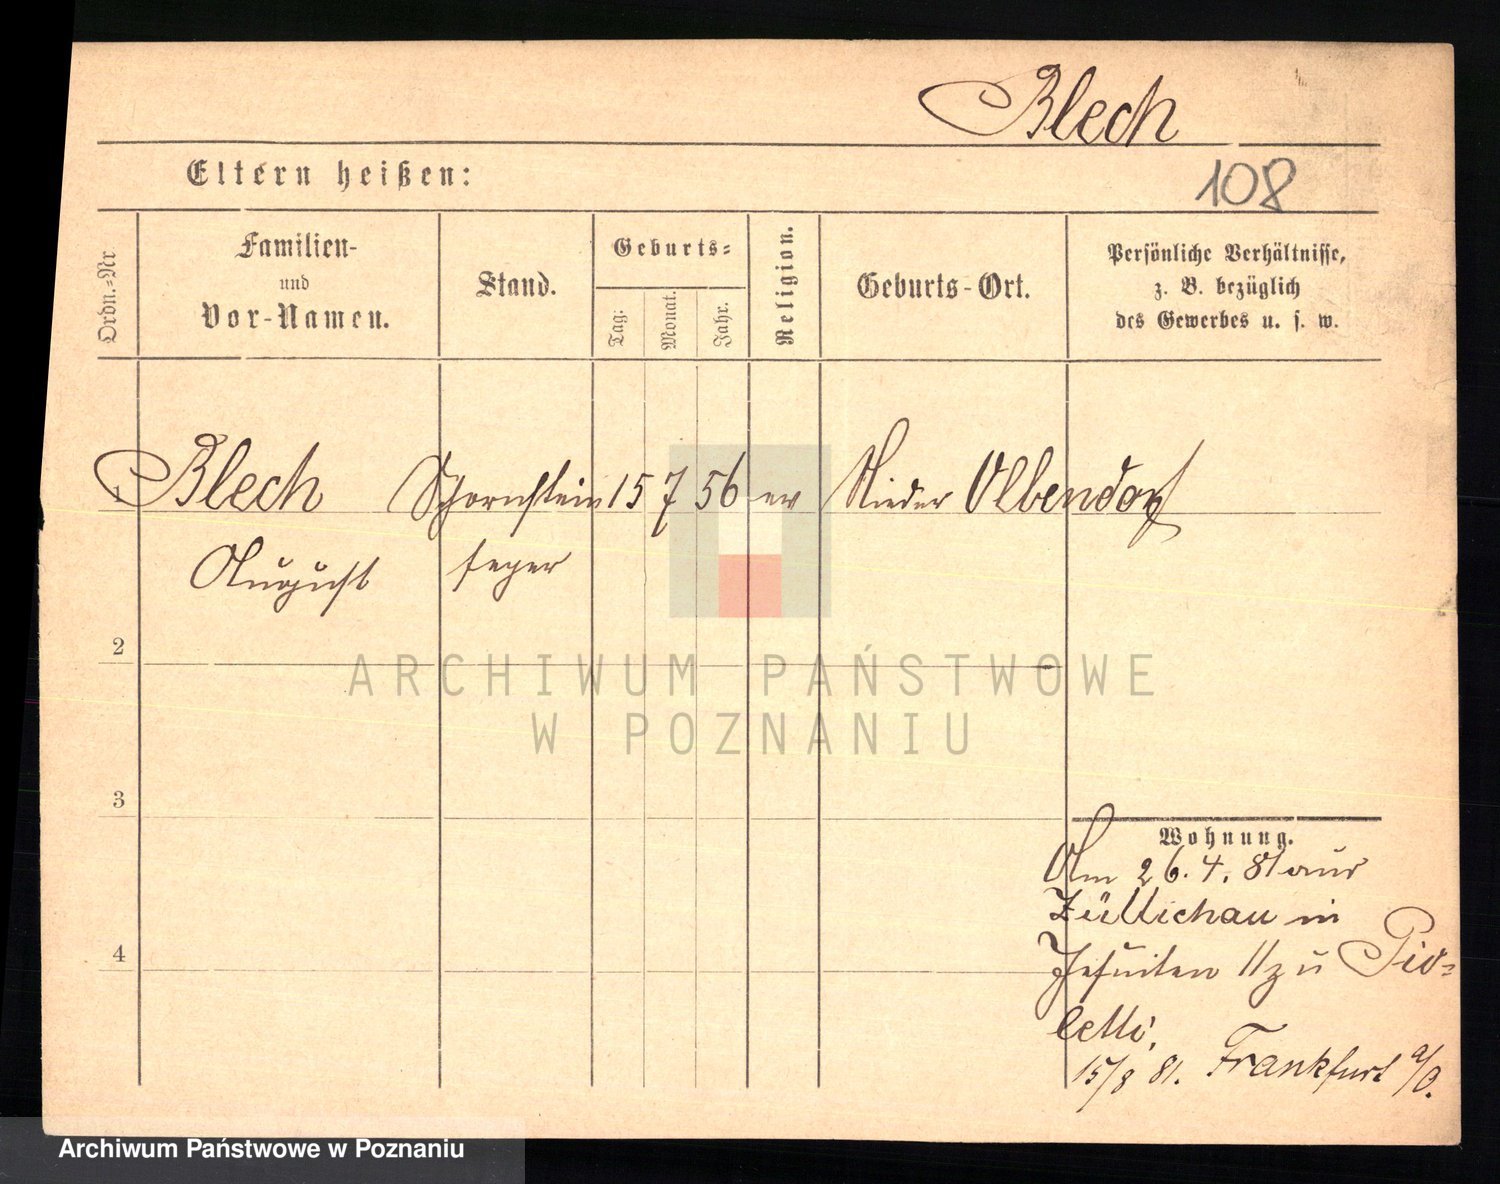 Blech
Eltern heißen:
108
Ordn.-Nr
Familien-
und
Vor-Namen.
Stand.
Geburts-
Tag:
Monat.
Jahr.
Religion.
Geburts-Ort.
Persönliche Verhältnisse,
z. B. bezüglich
des Gewerbes u. s. w.
1 Blech Schornstein 15 7 56 ev Nieder Olbendorf
August feger
2
3
4
Wohnung.
Am 26. 4. 81 aus
Züllichau in
Jesuiten 11 zu Pio-
letti,
15/8 81. Frankfurt a/O.
ARCHIWUM PAŃSTWOWE
W POZNANIU
Archiwum Państwowe w Poznaniu